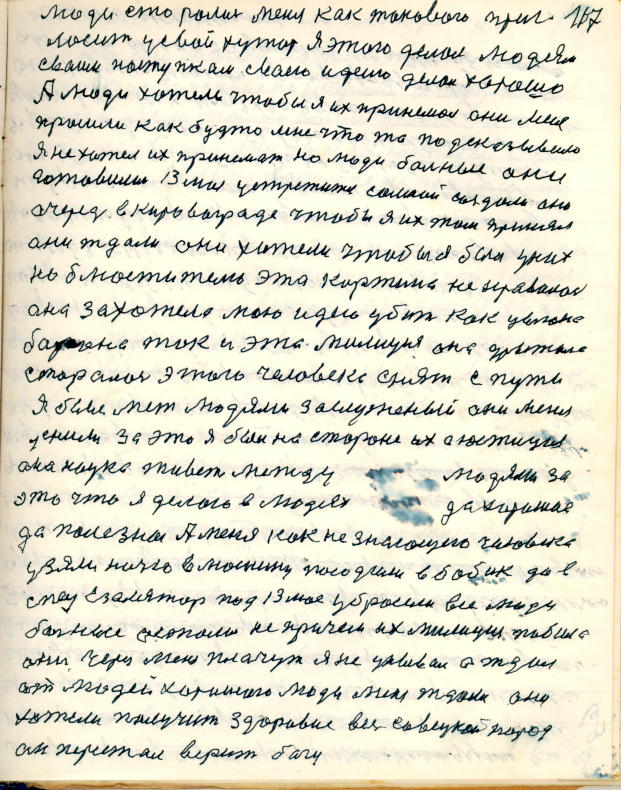 люди сторолис меня как токового приг 117
лосит усвой хутор Я этого делол людям
своим поступкам своею идею делол хорошо
А люди хотели чтобы я их принемал они меня
просили как будто мне что то подсказывало
Я не хотел их принемат но люди болные они
готовили 13 мая устретить создали они
очеред в Кировограде чтобы я их там принял
они ждали они хотели чтобы я был у них
но блюститель эта картина не нравилас
она захотела мою идею убит как
так и эта милиция она
старалас этого человека снят с пути
Я был меж людями заслуженый они меня
ценили за это я был на стороне их а юстиция
она наука живет между людями за
это что я делаю в людях да хорошое
да полезное А меня как не знающего человека
узяли ночю в машину посадили в бобик да в
спец езалятор под 13 мое убросили все люди
болные остались не причем их милиция побила
они через меня плачут я не убивал а ждал
от людей хорошого люди меня ждали они
хотели получит здоровие вес совецкой народ
он перестал верит богу